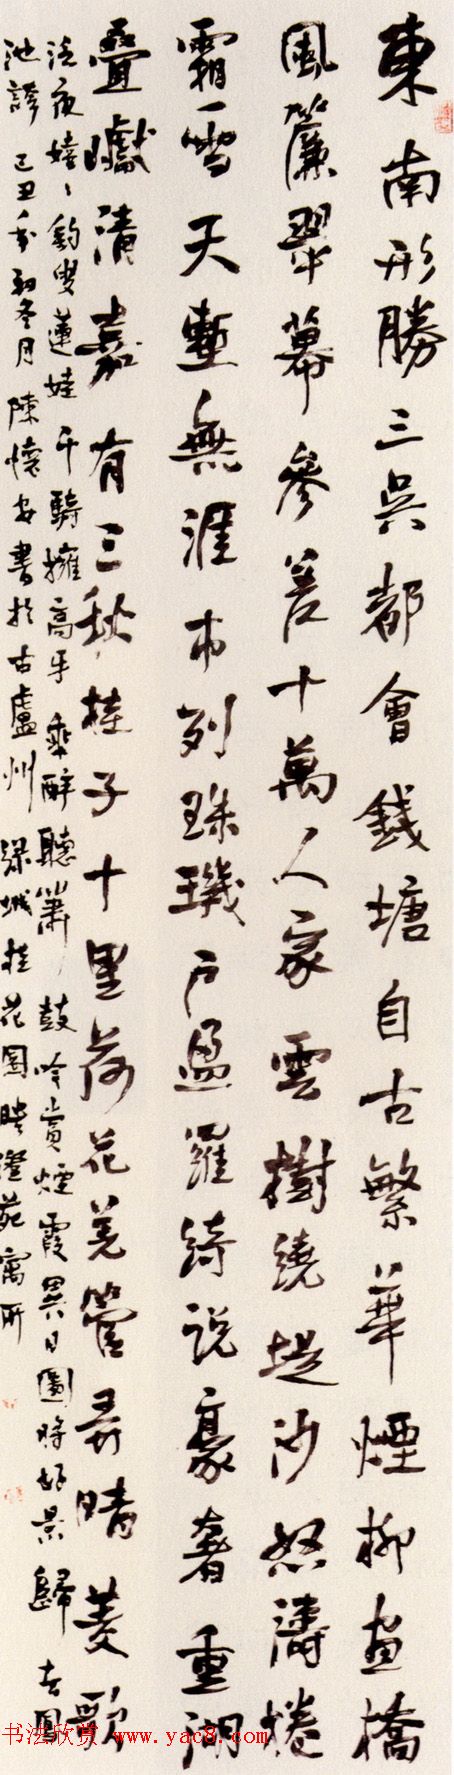 東南形勝三吳都會錢塘自古繁華煙柳畫橋
風簾翠幕參差十萬人家雲樹繞堤沙怒濤捲
霜雪天塹無涯市列珠璣户盈羅綺説豪奢重湖
疊巘清嘉有三秋桂子十里荷花羌管弄晴菱歌
泛夜嬉々釣叟蓮娃千騎擁高牙乘醉聽簫鼓吟賞煙霞異日圖將好景歸去鳳
池誇 己丑年初冬月陳懷安書於古盧州緑城桂花園映澄苑寓所
书法欣赏 www.yac8.com